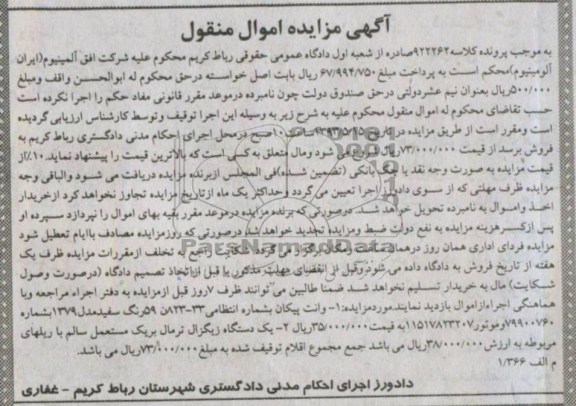 آگهی مزایده اموال منقول
به موجب پرونده کلاسه ۹۲۲۲۶۲ صادره از شعبه اول دادگاه عمومی حقوقی رباط کریم محکوم علیه شرکت افق آلمینیوم(ایران
آلومینیوم)محکم است به پرداخت مبلغ ۶۷/۹۹۴/۷۵۰ ریال بابت اصل خواسته درحق محکوم له ابوالحسن واقف ومبلغ
۵۰۰/۰۰۰ ریال بعنوان نیم عشردولتی درحق صندوق دولت چون نامبرده درموعد مقرر قانونی مفاد حکم را اجرا نکرده است
حسب تقاضای محکوم له اموال منقول محکوم علیه به شرح زیر به وسیله این اجرا توقیف وتوسط کارشناس ارزیابی گردیده
است ومقرر است از طریق مزایده در تاریخ ساعت ۱۰ صبح درمحل اجرای احکام مدنی دادگستری رباط کریم به
فروش برسد از قیمت ۷۳/۰۰۰/۰۰۰ ریال شروع می شود ومال متعلق به کسی است که بالاترین قیمت را پیشنهاد نماید.۱۰٪از
قیمت مزایده به صورت وجه نقد یا چک بانکی (تضمین شده)فی المجلس ازبرنده مزایده دریافت می شود والباقی وجه
مزایده ظرف مهلتی که از سوی دادورز اجرا تعیین می گردد وحداکثر یک ماه ازتاریخ مزایده تجاوز نخواهد کرد ازخریدار
اخذ واموال به نامبرده تحویل خواهد شد. درصورتی که برنده مزایده درموعد مقرر بقیه بهای اموال را نپردازد سپرده او
پس ازکسرهزینه مزایده به نفع دولت ضبط ومزایده تجدید خواهد شد درصورتی که روزمزایده مصادف باایام تعطیل شود
مزایده فردای اداری همان روز درهمان ساعت ومکان برگزار می گردد شکایت راجع به تخلف ازمقررات مزایده ظرف یک
هفته از تاریخ فروش به دادگاه داده می شود وقبل از انقضای مهلت مذکور یا قبل از اتخاذ تصمیم دادگاه (درصورت وصول
شکایت) مال به خریدار تسلیم نخواهد شد ضمنا طالبین می توانند ظرف ۷روز قبل ازمزایده به دفتر اجراء مراجعه وبا
هماهنگی اجراءازاموال بازدید نمایند.موردمزایده:۱- وانت پیکان بشماره انتظامی۳۳-۸۲۳ن۵۹رنگ سفیدمدل۱۳۷۹بشماره
۷۹۹۰۰۷۶۰ وموتور۱۱۵۱۷۸۲۳۲۰۷به قیمت۳۵/۰۰۰/۰۰۰ریال ۲- یک دستگاه زیگزال ترمال بریک مستعمل سالم با ریلهای
مربوطه به ارزش۳۸/۰۰۰/۰۰۰ریال می باشد جمع مجموع اقلام توقیف شده به مبلغ ۷۳/۰۰۰/۰۰۰ریال می باشد.
م الف ۱/۳۶۶
دادورز اجرای احکام مدنی دادگستری شهرستان رباط کریم - غفاری
ParsNamadData